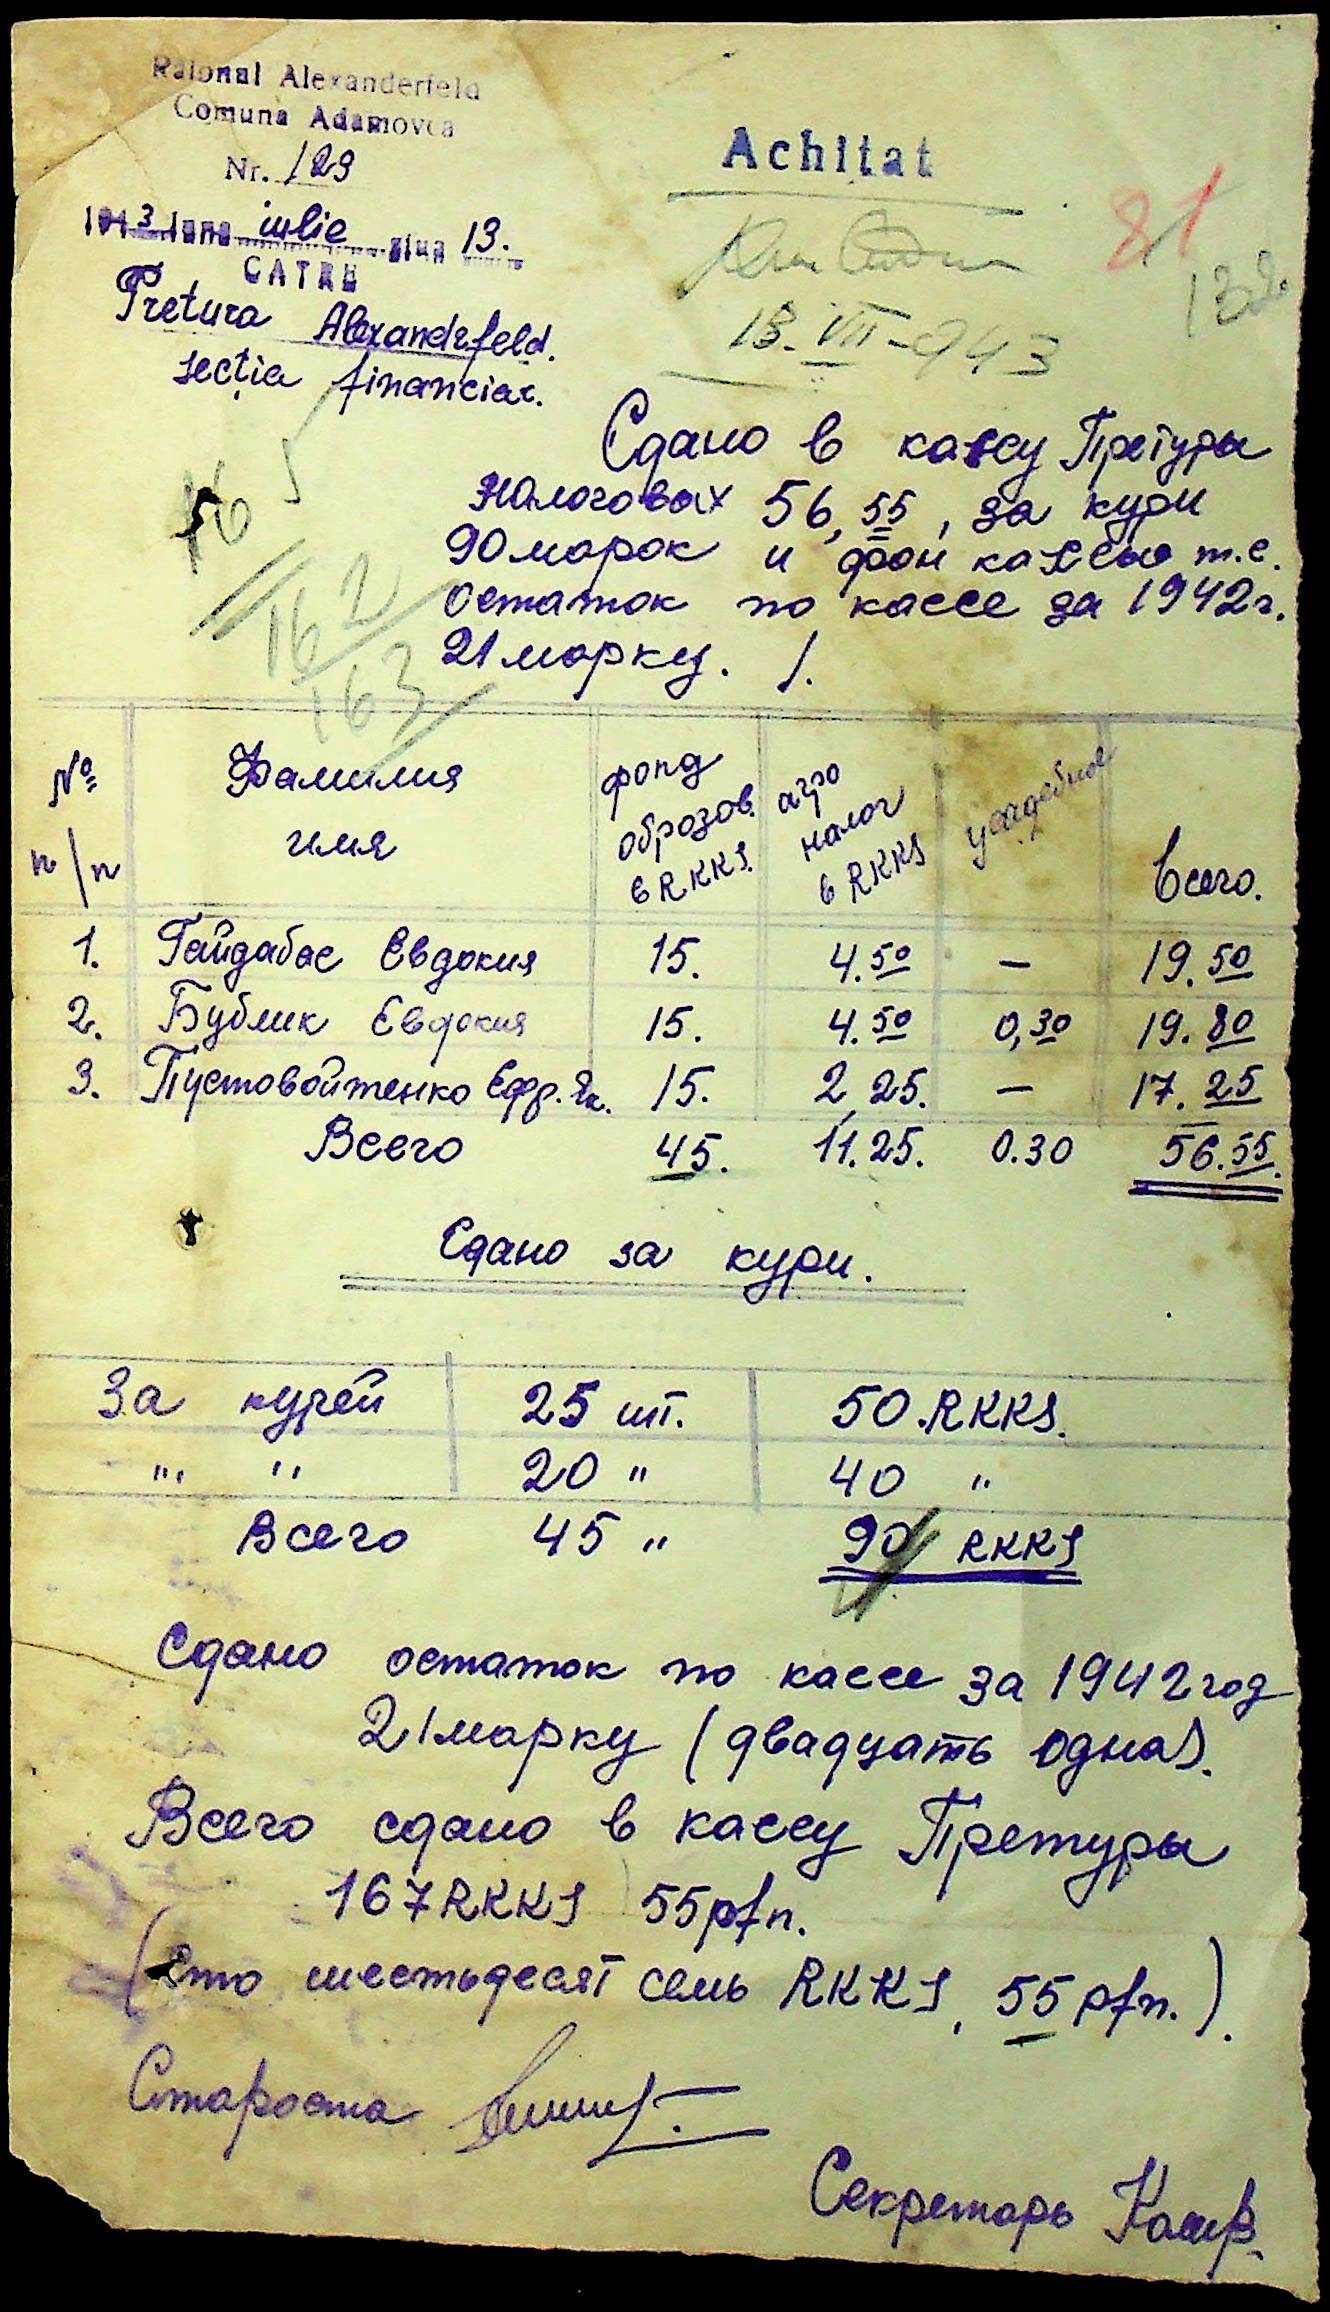 Raionul Alexanderfeld
Comuna Adamovca
Nr. 129
1943 luna iulie ziua 13.
CATRE
Pretura Alexandrfeld.
secția financiar.
Achitat
13. VII-943
81
132
Сдано в кассу Претуры
налоговых 56,55, за кури
90 марок и фон кассы т.е.
остаток по кассе за 1942г.
21 марку. /.
16
162
163
№ п/п Фамилия имя фонд образов. в RKKS. агро налог в RKKS усадебные Всего.
1. Гайдабас Евдокия 15. 4.50 — 19.50
2. Бублик Евдокия 15. 4.50 0,30 19.80
3. Пустовойтенко Ефр. Як. 15. 2,25. — 17.25
Всего 45. 11.25. 0.30 56.55.
Сдано за кури.
За курей 25 шт. 50.RKKS.
" " 20 " 40 "
Всего 45 " 90 RKKS
Сдано остаток по кассе за 1942 год
21 марку (двадцать одна).
Всего сдано в кассу Претуры
167 RKKS 55 pfn.
(Сто шестьдесят семь RKKS, 55 pfn.).
Староста
Секретарь